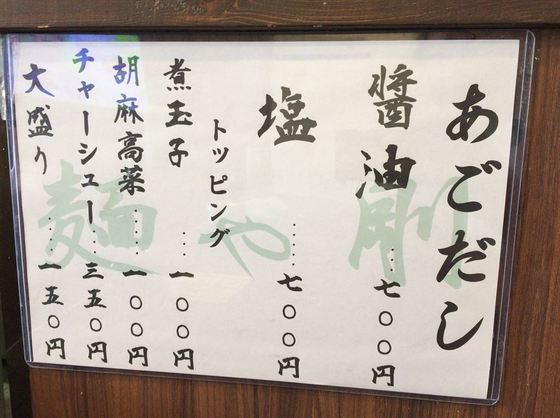 あごだし
醤油……七〇〇円
塩……七〇〇円
トッピング
煮玉子……一〇〇円
胡麻高菜……一〇〇円
チャーシュー……三五〇円
大盛り……一五〇円
麺や剛